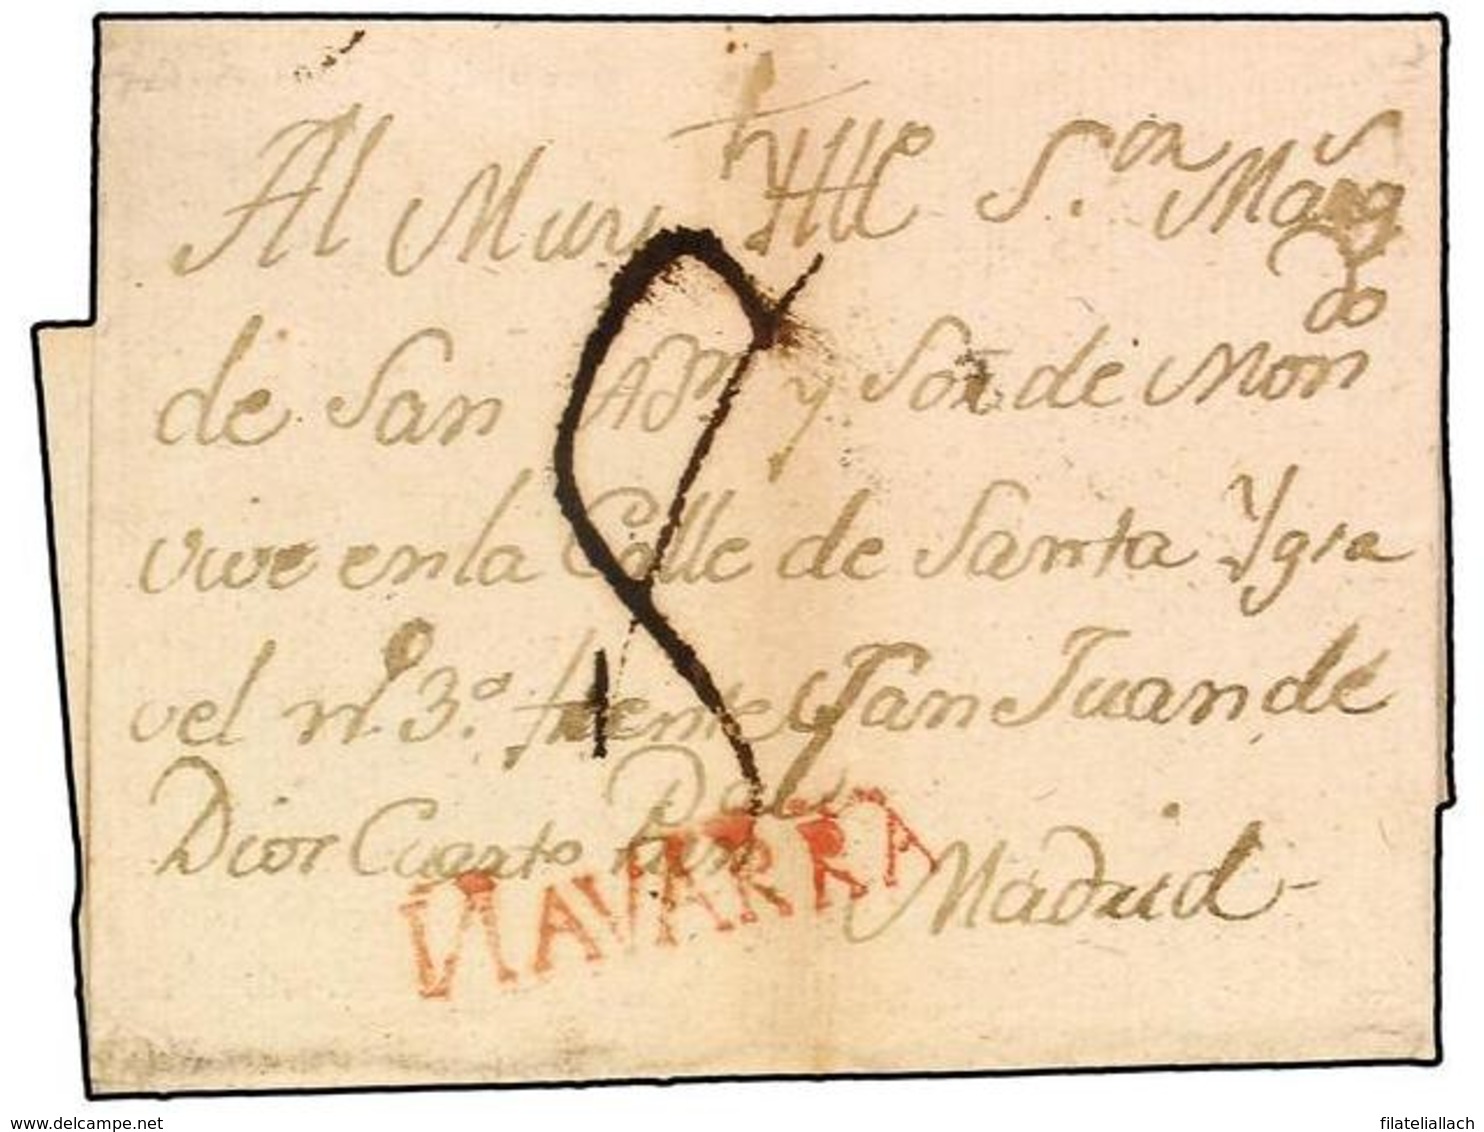 Al Muy Ille Sor Marqs
de San Adrn y Sor de Mon
do
vive en la Calle de Santa Ysa
vel no 3o frente San Juan de
Dios Cuarto
Madrid
NAVARRA
delcampe.net
filateliallach